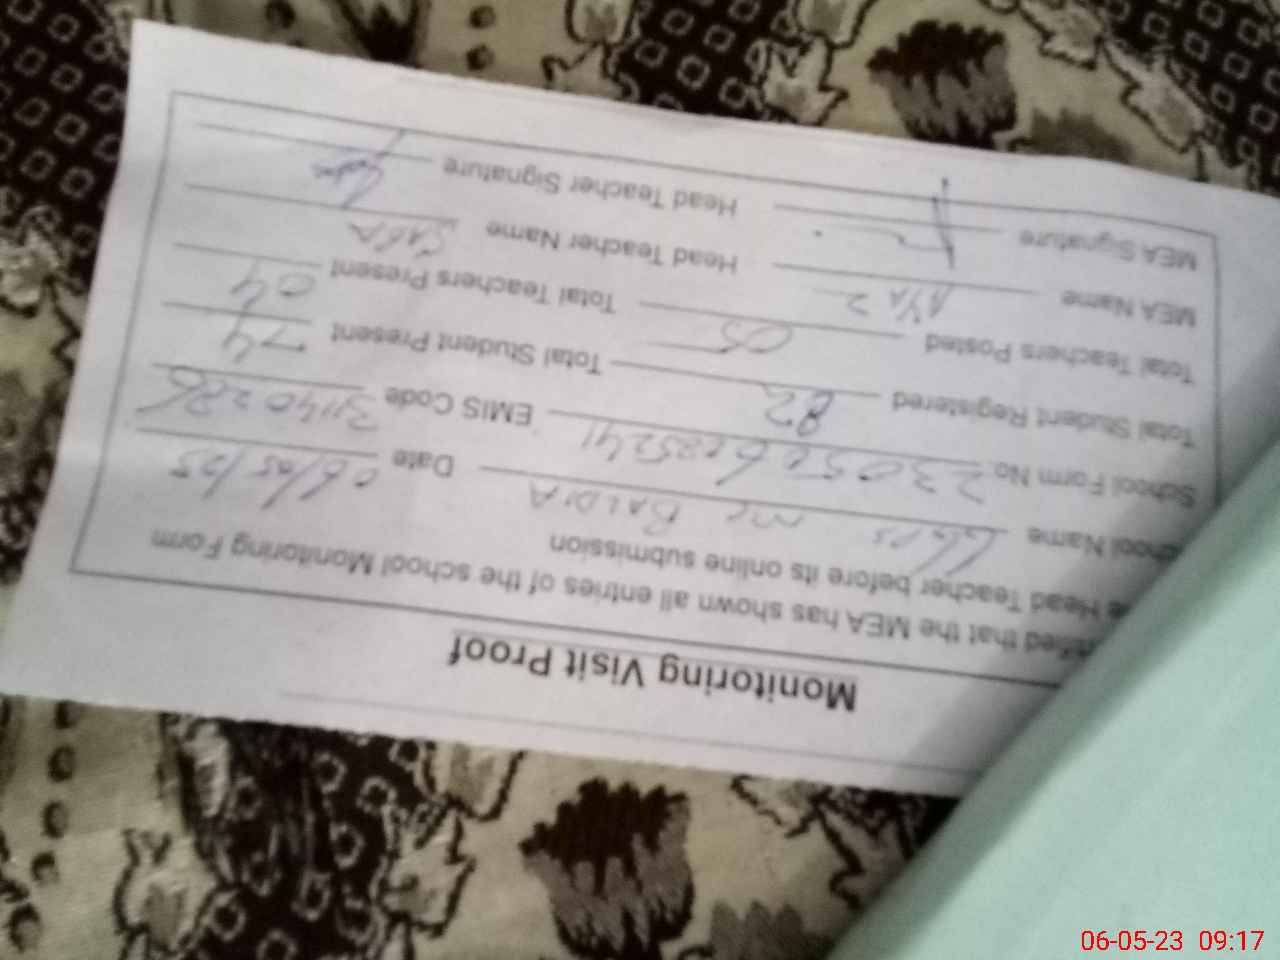 Monitoring Visit Proof
that the MEA has shown all entries of the school Monitoring Form
Head Teacher before its online submission
School Name GGPS MC BALDIA Date 06/05/23
School Form No. EMIS Code
Total Student Registered 82 Total Student Present 74
Total Teachers Posted 05 Total Teachers Present 04
MEA Name Head Teacher Name SABA
MEA Signature Head Teacher Signature
06-05-23 09:17